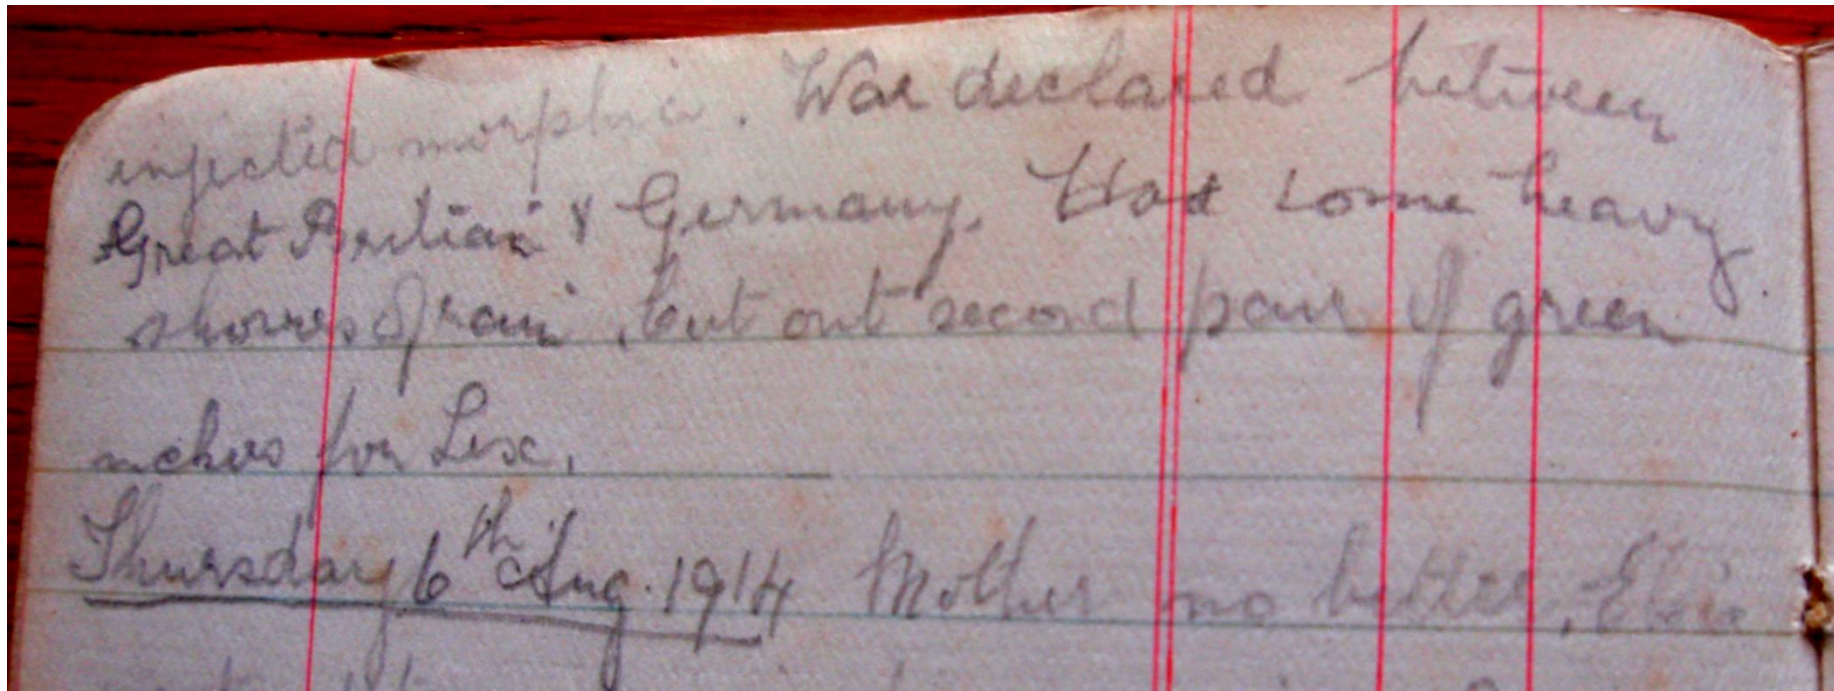 injected morphia. War declared between
Great Britian & Germany. Had some heavy
showres of rain, cut out second pair of green
for Lex.
Thursday 6th Aug. 1914 Mother no better, Elsie